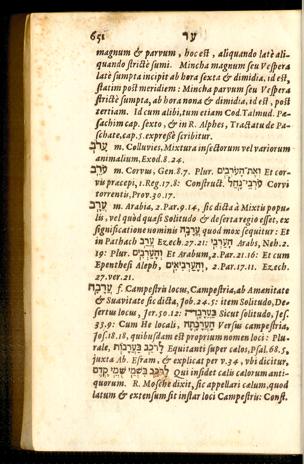 651 ער
magnum & parvum, hoc est, aliquando latè ali-
quando strictè sumi. Mincha magnum seu Vespera
latè sumpta incipit ab hora sexta & dimidia, id est,
statim post meridiem: Mincha parvum seu Vespera
strictè sumpta, ab hora nona & dimidia, id est, post
tertiam. Id cum alibi, tum etiam Cod. Talmud. Pe-
sachim cap. sexto, & in R. Alphes, Tractatu de Pa-
schate, cap. 5. expressè scribitur.
m. Colluvies, Mixtura insectorum vel variorum
animalium, Exod. 8.24.
m. Corvus, Gen. 8.7. Plur. Et cor-
vis præcepi, 1. Reg. 17.8: Construct. Corvi
torrentis, Prov. 30.17.
m. Arabia, 2. Par. 9.14, sic dicta à Mixtis popu-
lis, vel quòd quasi Solitudo & deserta regio esset, ex
significatione nominis quod mox sequitur: Et
in Pathach Ezech. 27.21: Arabs, Neh. 2.
19: Plur. Et Arabum, 2. Par. 21.16: Et cum
Epenthesi Aleph, 2. Par. 17.11. Ezech.
27. ver. 21.
f. Campestris locus, Campestria, ab Amænitate
& Suavitate sic dicta, Job. 24.5: item Solitudo, De-
sertus locus, Jer. 50.12: Sicut solitudo, Jes.
33.9: Cum He locali, Versus campestria,
Jos. 18.18, quibusdam est proprium nomen loci: Plu-
rale, Equitanti super cælos, Psal. 68.5,
juxta Ab. Esram, & explicat per v. 34, ubi dicitur,
Qui insidet cælis cælorum anti-
quorum. R. Mosche dixit, sic appellari cælum, quod
latum & extensum sit instar loci Campestris: Const.